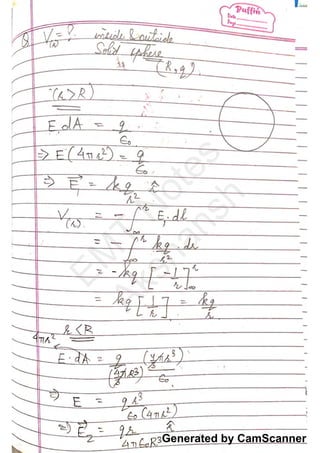 Puffin
Date
Page
Q. V(r) = ? inside & outside
Solid sphere
(R, q)
(r > R)
E.dA = q/ε₀
⇒ E(4πr²) = q/ε₀
⇒ E₁ = kq/r² r̂
V(r) = -∫∞^r E₁.dl
= -∫∞^r kq/r² . dr
= -kq [-1/r]∞^r
= kq[1/r] = kq/r
r < R
4πr²
E.dA = q/(4/3 πR³) (4/3 πr³)/ε₀
⇒ E = qr³/ε₀(4πr²)
⇒ E₂ = qr/4πε₀R³ r̂
EMT Notes
Generated by CamScanner